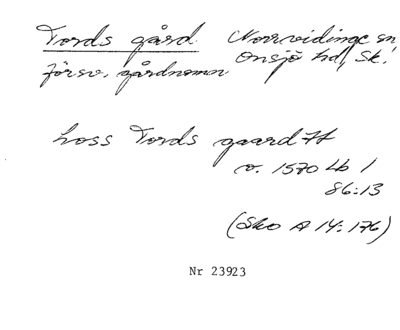 Tords gård. Norrvidinge sn
försv. gårdnamn Onsjö hd, Sk.
hoss Tords gaard Jt
o. 1570 Lb 1
86:13
(Sko A 14:176)
Nr 23923